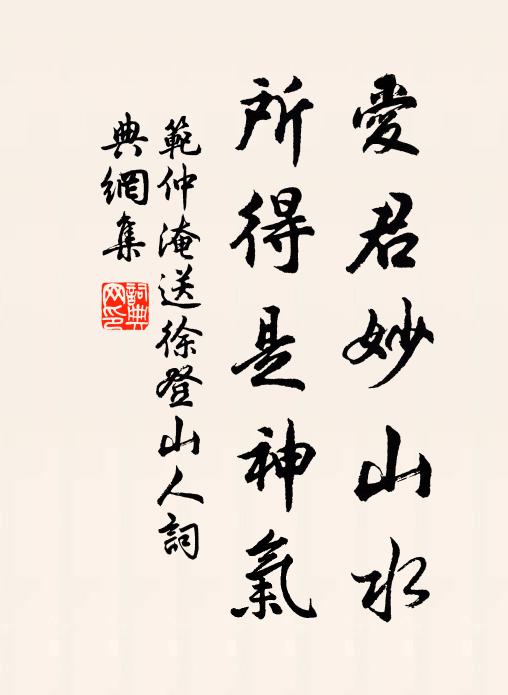 愛君妙山水
所得是神氣
範仲淹送徐登山人詞
典網集
詞典網印